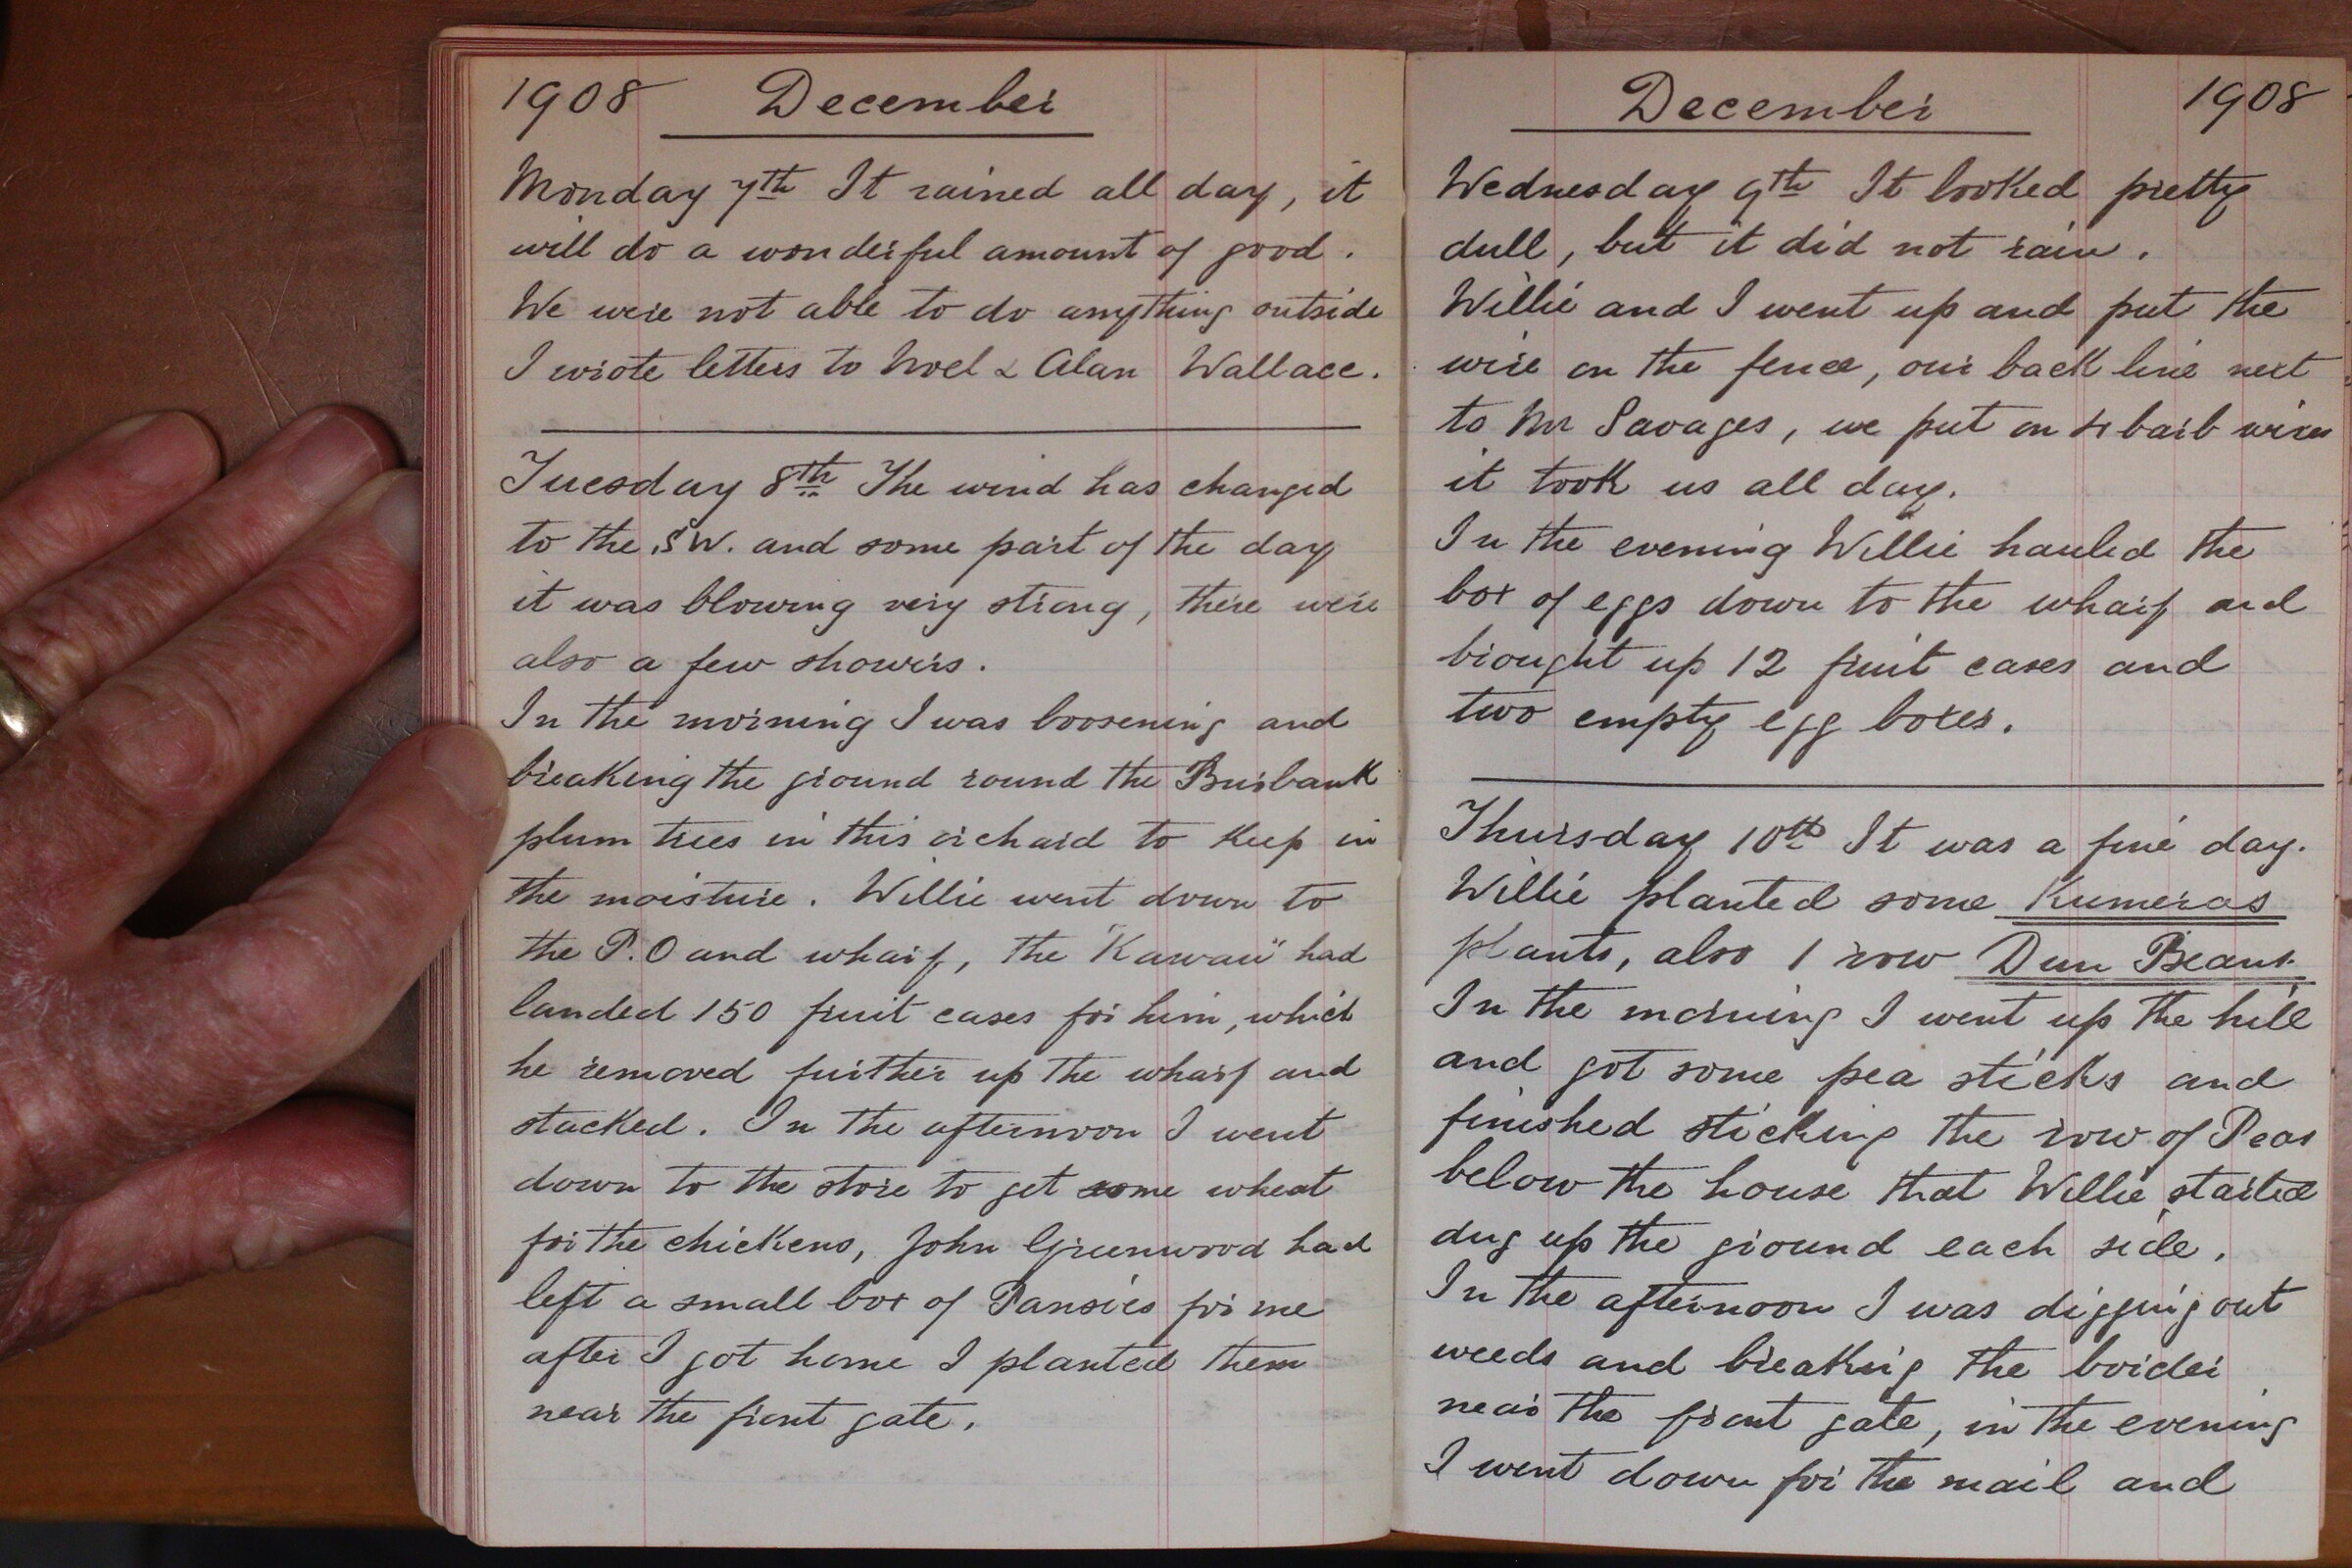 1908 December
Monday 7th It rained all day, it
will do a wonderful amount of good.
We were not able to do anything outside
I wrote letters to Noel & Alan Wallace.
Tuesday 8th The wind has changed
to the S.W. and some part of the day
it was blowing very strong, there were
also a few showers.
In the morning I was loosening and
breaking the ground round the Burbank
plum trees in this orchard to keep in
the moisture. Willie went down to
the P.O and wharf, the "Kawau" had
landed 150 fruit cases for him, which
he removed further up the wharf and
stacked. In the afternoon I went
down to the store to get some wheat
for the chickens, John Greenwood had
left a small box of Pansies for me
after I got home I planted them
near the front gate.
December 1908
Wednesday 9th It looked pretty
dull, but it did not rain.
Willie and I went up and put the
wire on the fence, our back line next
to Mr Savages, we put on 4 barb wires
it took us all day.
In the evening Willie hauled the
box of eggs down to the wharf and
brought up 12 fruit cases and
two empty egg boxes.
Thursday 10th It was a fine day.
Willie planted some Kumeras
plants, also 1 row Dun Beans
In the morning I went up the hill
and got some pea sticks and
finished sticking the row of Peas
below the house that Willie started
dug up the ground each side.
In the afternoon I was digging out
weeds and breaking the border
near the front gate, in the evening
I went down for the mail and